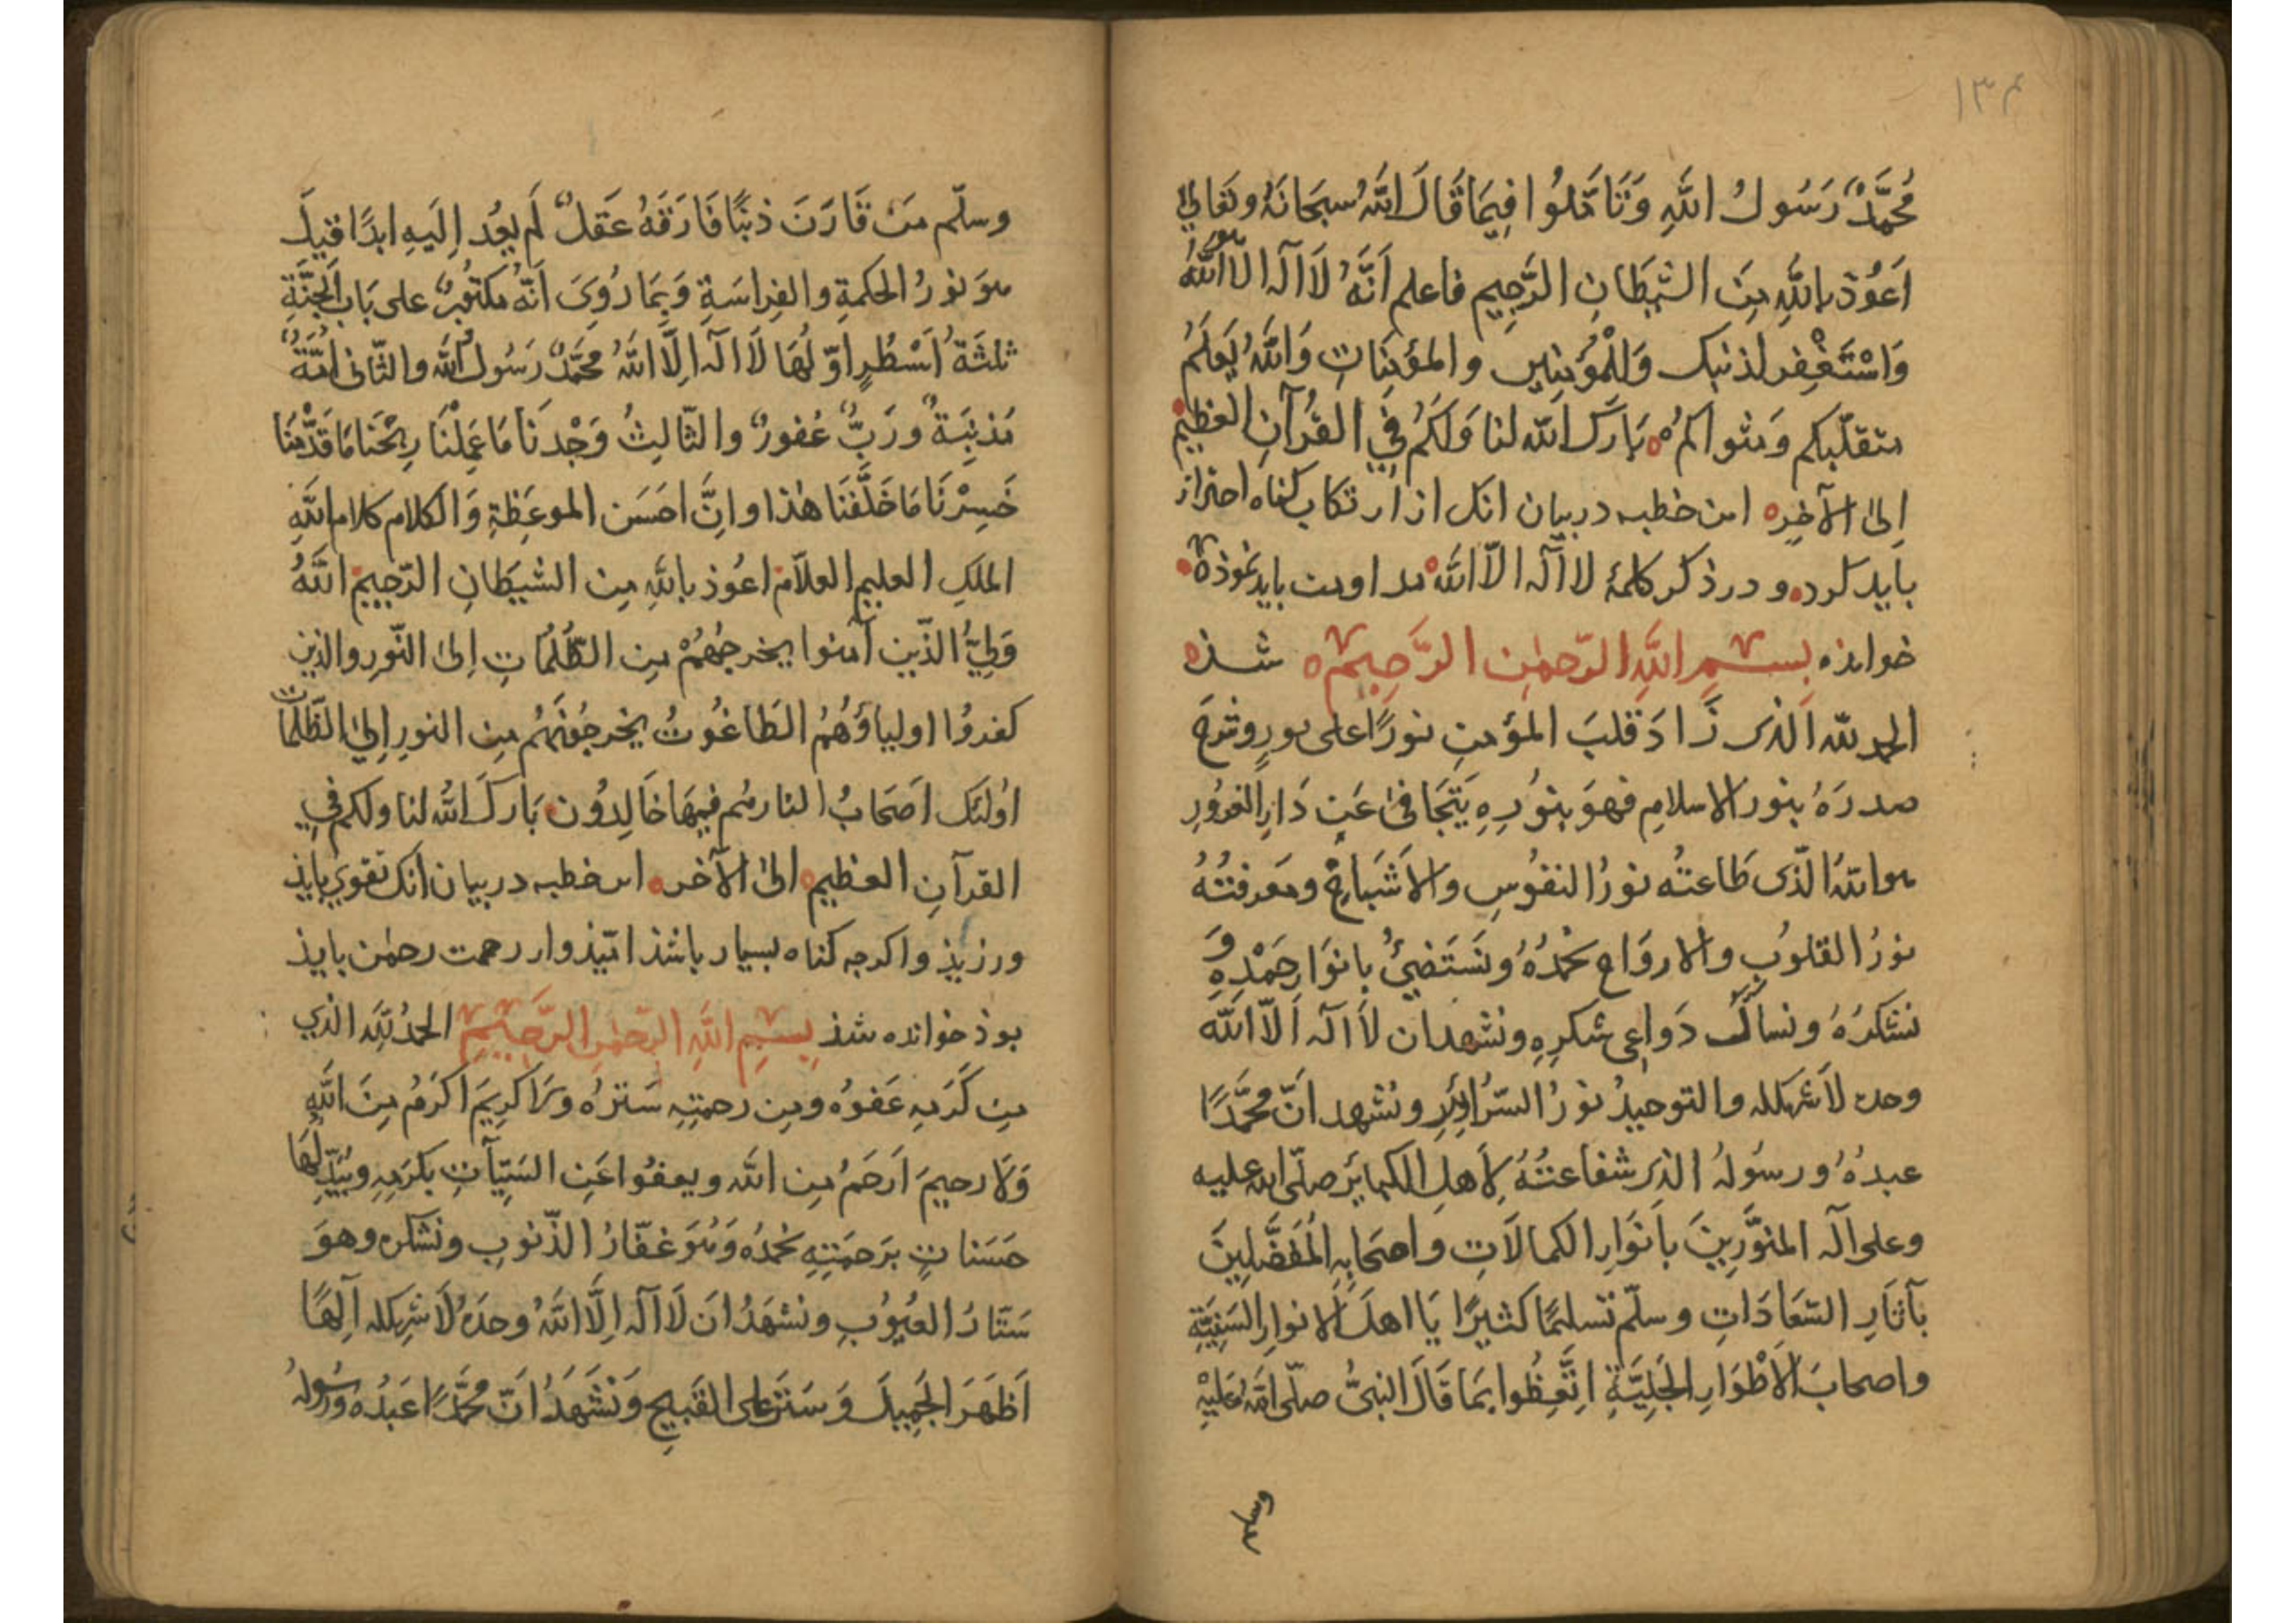 ١٣٤
مُحَمَّدٌ رَسُولُ اللّٰهِ وَتَأمَّلُوا فِيمَا قَالَ اللّٰهُ سبحَانَهُ وتعَالىٰ
اَعُوْذ باللّٰهِ مِنَ الشيطَانِ الرَّجِيمِ فاعلم اَنَّهُ لَا اله الّا اللّٰهُ
وَاسْتَغْفِر لذنبِك وَلِلْمُؤْمِنِين والمؤمِنَاتِ وَاللّٰهُ يَعلَمُ
متقلّبكم وَمثواكم ه بَارَكَ اللّٰه لنا وَلَكُم فِي القُرآنِ العَظيم
اِلىٰ الآخِرِه اين خطبه در بيان انك از ارتكاب كناه احتراز
بايد كرد و در ذكر كلمهٔ لا اله الّا اللّٰه مداومت بايد نموذه
خوانده بِسْمِ اللّٰهِ الرّحمٰنِ الرَّحِيم ه شذه
الحمد للّه الّذى زَادَ قلبَ المؤمنِ نورًا على نورٍ وشرحَ
صدرَهُ بنور الاسلامِ فهوَ بنُورِهِ يَتَجَافىٰ عَن دَارِ الغرُورِ
هو اللّهُ الّذى طَاعتُه نورُ النفُوسِ والاَشبَاحِ ومعرفتُهُ
نورُ القلوبِ والاروَاحِ نحْمَدُهُ ونَسْتَضِئُ بانوَارِ حَمْدِهِ وَ
نشكرُهُ ونسأَلُكَ دَواعِى شكرِهِ ونشهد ان لاَ اله اَلّا اللّٰه
وحده لاَ شريك له والتوحيدُ نورُ السّرَائِرِ ونشهد انّ محمَّدًا
عبدُهُ ورسُولُهُ الذى شفاعتُهُ لِاَهلِ الكبايَرِ صلّى الله عليه
وعلى آله المنوَّرِينَ بأنوَارِ الكمالَاتِ واصحَابِهِ المُفَضَّلِينَ
بآثَارِ السّعَادَاتِ وسلّم تسليمًا كثيرًا يَا اهلَ الانوارِ السَنِيَّةِ
واصحابَ الاَطْوَارِ الجَلِيَّةِ اتَّعِظُوا بِمَا قَالَ النبىُّ صلّى اللّٰهُ عَلَيْهِ
وسلم
وسلّم مَن قَارَنَ ذنبًا فَارَقَهُ عَقلٌ لَم يعُد اِلَيهِ ابدًا قيلَ
هوَ نورُ الحكمةِ والفِراسَةِ وَبِمَا رُوِىَ اَنّهُ مكتُوبٌ على بَابِ الجَنَّةِ
ثلثَةُ اَسْطُرٍ اوّلُهَا لَا اله اِلَّا اللّٰهُ محمَّدٌ رَسُولُ اللّٰه والثّانى اُمَّةٌ
مُذنِبَةٌ ورَبٌّ غفورٌ والثّالِثُ وَجْدنَا مَا عَمِلْنَا رِبحْنا مَا قَدَّمْنَا
خَسِرْنَا مَا خَلَّفنَا هٰذا وانَّ احسَن الموعِظةِ وَالكلامِ كلام اللّٰهِ
الملكِ العليمِ العلاّم اعُوذ باللّٰهِ مِن الشيطَانِ الرّجيم اللّٰهُ
وَلِيُّ الذّين آمنوا يخرجُهُمْ مِن الظُّلُمَاتِ اِلىٰ النّورِ والذين
كفرُوا اولياؤُهُمُ الطَاغُوتُ يُخرجُونَهُم مِن النورِ اِلىٰ الظّلُمَات
اُولئك اَصحَابُ النار هُم فيهَا خَالِدُون بَارَكَ اللّٰهُ لنا ولكم فِي
القرآنِ العظيم الىٰ الآخره اين خطبه در بيان انك تقوى بايذ
ورزيذ واكرجه كناه بسيار باشذ اميّذوار رحمت رحمٰن بايذ
بوذ خوانده شذ بِسْمِ اللّٰهِ الرّحمٰنِ الرَّحِيْمِ الحمدُ لِلّٰهِ الذي
مِن كَرَمِهِ عَفوُهُ ومِن رحمتِهِ سَترُهُ وَلَا كرِيمَ اكرَمُ مِنَ اللّٰهِ
وَلَا رحيمَ اَرحَمُ مِن اللّٰه ويعفُوا عَنِ السَيِّأتِ بكرَمِهِ ويُبَدِّلُهَا
حَسَناتٍ برَحمَتِهِ نحْمدُه وَهُوَ غفّارُ الذّنوبِ ونشكره وهوَ
سَتّارُ العُيُوبِ ونشهَدُ ان لَا اله اِلَّا اللّٰهُ وحدَهُ لَا شريك له اِلٰهًا
اَظهَرَ الجَمِيلَ وَسَترَ على القَبيحِ وَنَشْهَدُ اَنّ مُحَمَّدًا عَبدُه ورَسُولُه